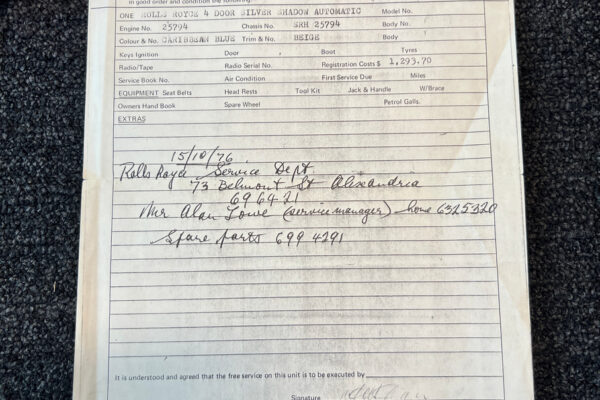 in good order and condition the following:
ONE ROLLS ROYCE 4 DOOR SILVER SHADOW AUTOMATIC Model No.
Engine No. 25794 Chassis No. SRH 25794 Body No.
Colour & No. CARIBBEAN BLUE Trim & No. BEIGE Body
Keys Ignition Door Boot Tyres
Radio/Tape Radio Serial No. Registration Costs $ 1,293.70
Service Book No. Air Condition First Service Due Miles
EQUIPMENT Seat Belts Head Rests Tool Kit Jack & Handle W/Brace
Owners Hand Book Spare Wheel Petrol Galls.
EXTRAS
15/10/76
Rolls Royce Service Dept.
73 Belmont St Alexandria
69 64 21
Mr Alan Lowe (service manager) home 6325320
Spare parts 699 4291
It is understood and agreed that the free service on this unit is to be executed by
Signature